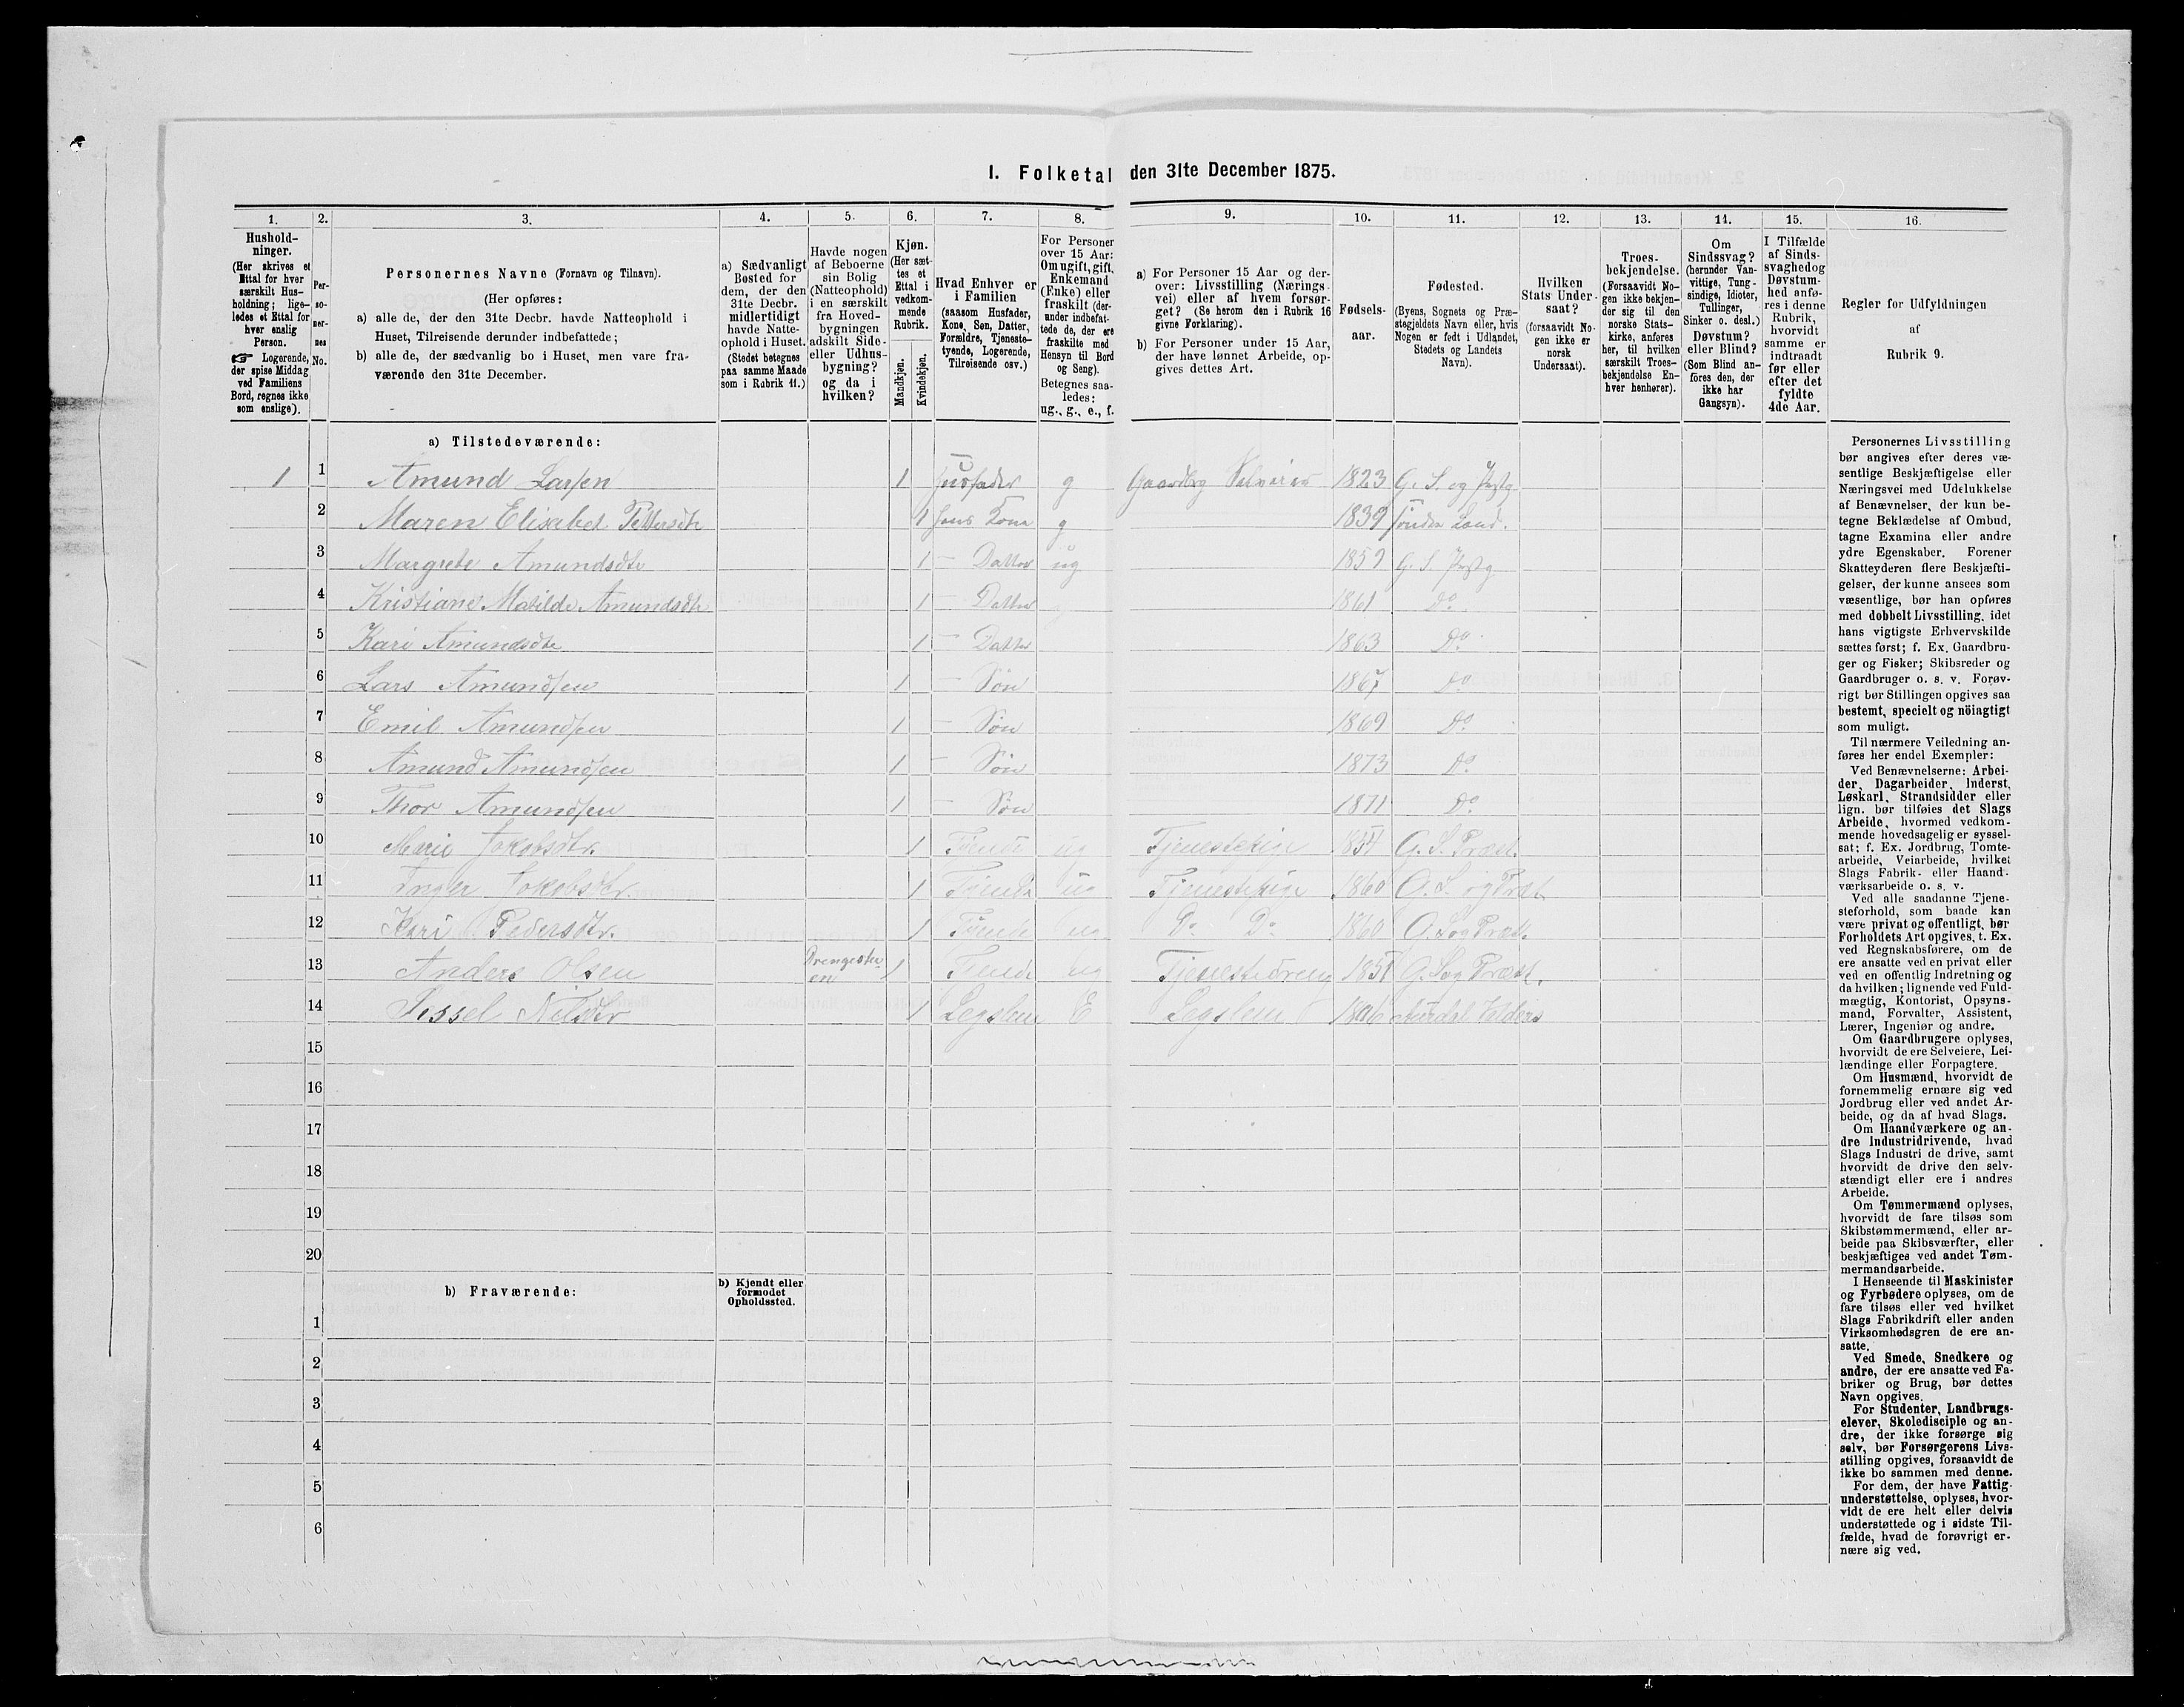 1. Folketal den 31te December 1875.
1.
2.
3.
4.
5.
6.
7.
8.
9.
10.
11.
12.
13.
14.
15.
16.
Hushold-
ninger.
(Her skrives et
Ettal for hver
særskilt Hus-
holdning; lige-
ledes et Ettal for
hver enslig
Person.
☞ Logerende,
der spise Middag
ved Familiens
Bord, regnes ikke
som enslige).
Per-
so-
ner-
nes
No.
Personernes Navne (Fornavn og Tilnavn).
(Her opføres:
a) alle de, der den 31te Decbr. havde Natteophold i
Huset, Tilreisende derunder indbefattede;
b) alle de, der sædvanlig bo i Huset, men vare fra-
værende den 31te December.
a) Sædvanligt
Bosted for
dem, der den
31te Decbr.
midlertidigt
havde Natte-
ophold i Huset.
(Stedet betegnes
paa samme Maade
som i Rubrik 11.)
Havde nogen
af Beboerne
sin Bolig
(Natteophold)
i en særskilt
fra Hoved-
bygningen
adskilt Side-
eller Udhus-
bygning?
og da i
hvilken?
Kjøn.
(Her sæt-
tes et
Ettal i
vedkom-
mende
Rubrik.
Mandkjøn.
Kvindekjøn.
Hvad Enhver er
i Familien
(saasom Husfader,
Kone, Søn, Datter,
Forældre, Tjeneste-
tyende, Logerende,
Tilreisende osv.)
For Personer
over 15 Aar:
Om ugift, gift,
Enkemand
(Enke) eller
fraskilt (der-
under indbefat-
tede de, der ere
fraskilte med
Hensyn til Bord
og Seng).
Betegnes saa-
ledes:
ug., g., e., f.
a) For Personer 15 Aar og der-
over: Livsstilling (Nærings-
vei) eller af hvem forsør-
get? (Se herom den i Rubrik 16
givne Forklaring).
b) For Personer under 15 Aar,
der have lønnet Arbeide, op-
gives dettes Art.
Fødsels-
aar.
Fødested.
(Byens, Sognets og Præ-
stegjeldets Navn eller, hvis
Nogen er født i Udlandet,
Stedets og Landets
Navn).
Hvilken
Stats Under-
saat?
(forsaavidt No-
gen ikke er
norsk
Undersaat).
Troes-
bekjendelse.
(Forsaavidt No-
gen ikke bekjen-
der sig til den
norske Stats-
kirke, anføres
her, til hvilken
særskilt Troes-
bekjendelse En-
hver henhører).
Om
Sindssvag?
(herunder Van-
vittige, Tung-
sindige, Idioter,
Tullinger,
Sinker o. desl.)
Døvstum?
eller Blind?
(Som Blind an-
føres den, der
ikke har
Gangsyn).
I Tilfælde
af Sinds-
svaghed og
Døvstum-
hed anfø-
res i denne
Rubrik,
hvorvidt
samme er
indtraadt
før eller
efter det
fyldte
4de Aar.
Regler for Udfyldningen
af
Rubrik 9.
a) Tilstedeværende:
1 1 Amund Larsen 1 Husfader g Gaardbrg Selveier 1823 G. S. og Prstg
2 Maren Elisabet Pettersdtr 1 hans Kone g 1839 Søndre Land.
3 Margrete Amundsdtr 1 — Datter ug 1859 G. S. Prstg
4 Kristiane Matilde Amundsdtr 1 — Datter 1861 Do
5 Kari Amundsdtr 1 — Datter 1863 Do
6 Lars Amundsen 1 — Søn 1867 Do
7 Emil Amundsen 1 — Søn 1869 Do
8 Amund Amundsen 1 — Søn 1873 Do
9 Thor Amundsen 1 — Søn 1871 Do
10 Marie Jakobsdtr. 1 Tjende ug Tjenestepige G. S. Præst.
11 Inger Jakobsdtr. 1 Tjende ug Tjenestepige 1860 G. S. og Præt.
12 Kari Pedersdtr. 1 Tjende ug Do Do 1860 G. S og Præt.
13 Anders Olsen Drengestu
en 1 Tjende ug Tjenestedreng G. S og Præst.
14 Sessel Nilsdtr 1 Legslem E Legslem Aurdal Valders
15
16
17
18
19
20
b) Fraværende:
b) Kjendt eller
formodet
Opholdssted.
1
2
3
4
5
6
Personernes Livsstilling
bør angives efter deres væ-
sentlige Beskjæftigelse eller
Næringsvei med Udelukkelse
af Benævnelser, der kun be-
tegne Beklædelse af Ombud,
tagne Examina eller andre
ydre Egenskaber. Forener
Skatteyderen flere Beskjæfti-
gelser, der kunne ansees som
væsentlige, bør han opføres
med dobbelt Livsstilling, idet
hans vigtigste Erhvervskilde
sættes først; f. Ex. Gaardbru-
ger og Fisker; Skibsreder og
Gaardbruger o. s. v. Forøv-
rigt bør Stillingen opgives saa
bestemt, specielt og nöiagtigt
som muligt.
Til nærmere Veiledning an-
føres her endel Exempler:
Ved Benævnelserne: Arbei-
der, Dagarbeider, Inderst,
Løskarl, Strandsidder eller
lign. bør tilføies det Slags
Arbeide, hvormed vedkom-
mende hovedsagelig er syssel-
sat; f. Ex. Jordbrug, Tomte-
arbeide, Veiarbeide, hvilket
Slags Fabrik- eller Haand-
værksarbeide o. s. v.
Ved alle saadanne Tjene-
steforhold, som baade kan
være privat og offentligt, bør
Forholdets Art opgives, t. Ex.
ved Regnskabsførere, om de
ere ansatte ved en privat eller
ved en offentlig Indretning og
da hvilken; lignende ved Fuld-
mægtig, Kontorist, Opsyns-
mand, Forvalter, Assistent,
Lærer, Ingeniør og andre.
Om Gaardbrugere oplyses,
hvorvidt de ere Selveiere, Lei-
lændinge eller Forpagtere.
Om Husmænd, hvorvidt de
fornemmelig ernære sig ved
Jordbrug eller ved andet Ar-
beide, og da af hvad Slags.
Om Haandværkere og an-
dre Industridrivende, hvad
Slags Industri de drive, samt
hvorvidt de drive den selv-
stændigt eller ere i andres
Arbeide.
Om Tømmermænd oplyses,
hvorvidt de fare tilsøs som
Skibstømmermænd, eller ar-
beide paa Skibsværfter, eller
beskjæftiges ved andet Tøm-
mermandsarbeide.
I Henseende til Maskinister
og Fyrbødere oplyses, om de
fare tilsøs eller ved hvilket
Slags Fabrikdrift eller anden
Virksomhedsgren de ere an-
satte.
Ved Smede, Snedkere og
andre, der ere ansatte ved Fa-
briker og Brug, bør dettes
Navn opgives.
For Studenter, Landbrugs-
elever, Skoledisciple og an-
dre, der ikke forsørge sig
selv, bør Forsørgerens Livs-
stilling opgives, forsaavidt de
ikke bo sammen med denne.
For dem, der have Fattig-
understøttelse, oplyses, hvor-
vidt de ere helt eller delvis
understøttede og i sidste Til-
fælde, hvad de forøvrigt er-
nære sig ved.